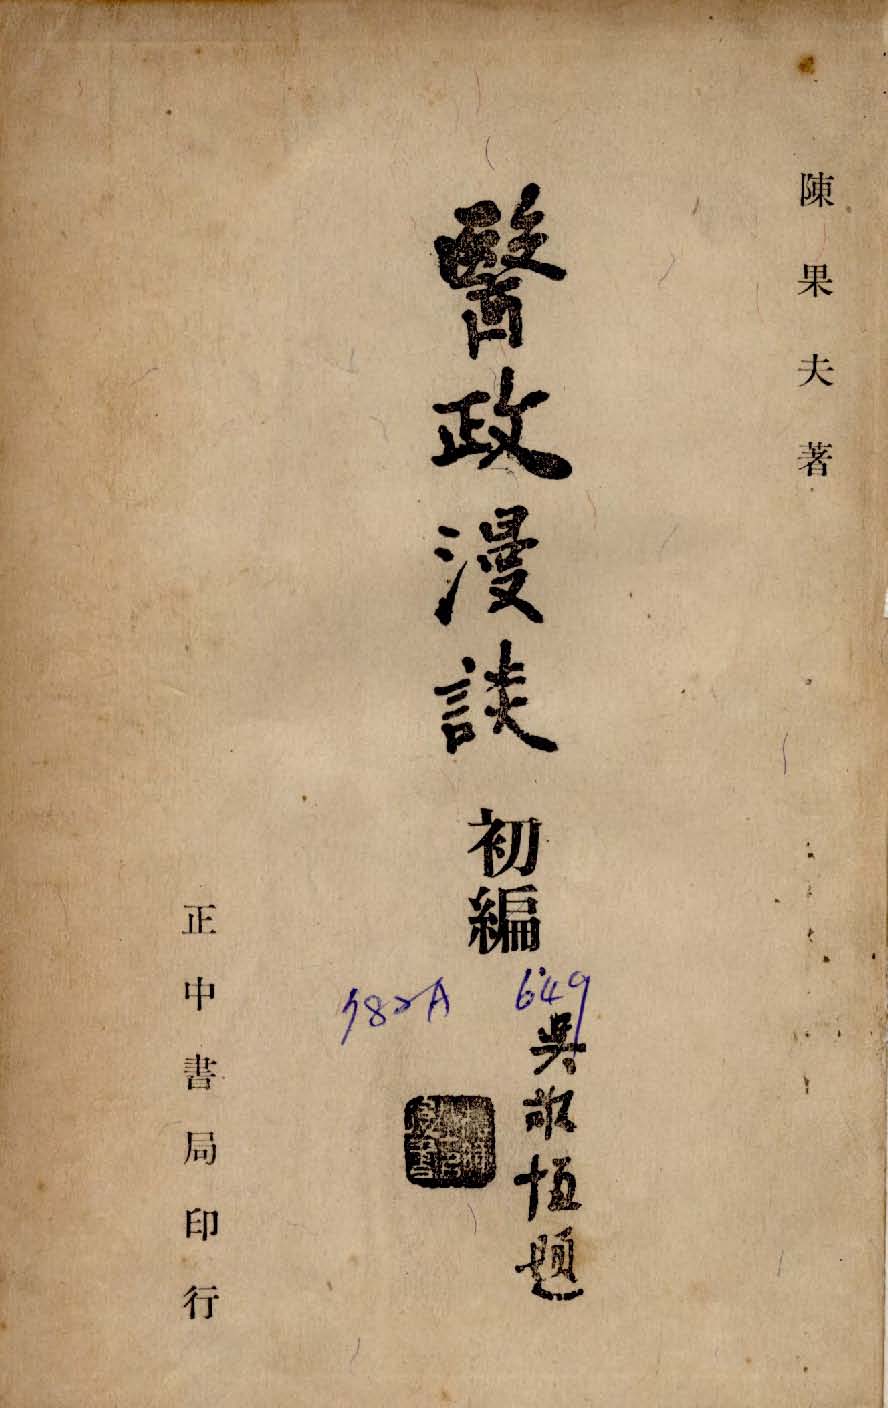 陳果夫著
醫政漫談
初編
649
吳敬恆題
正中書局印行